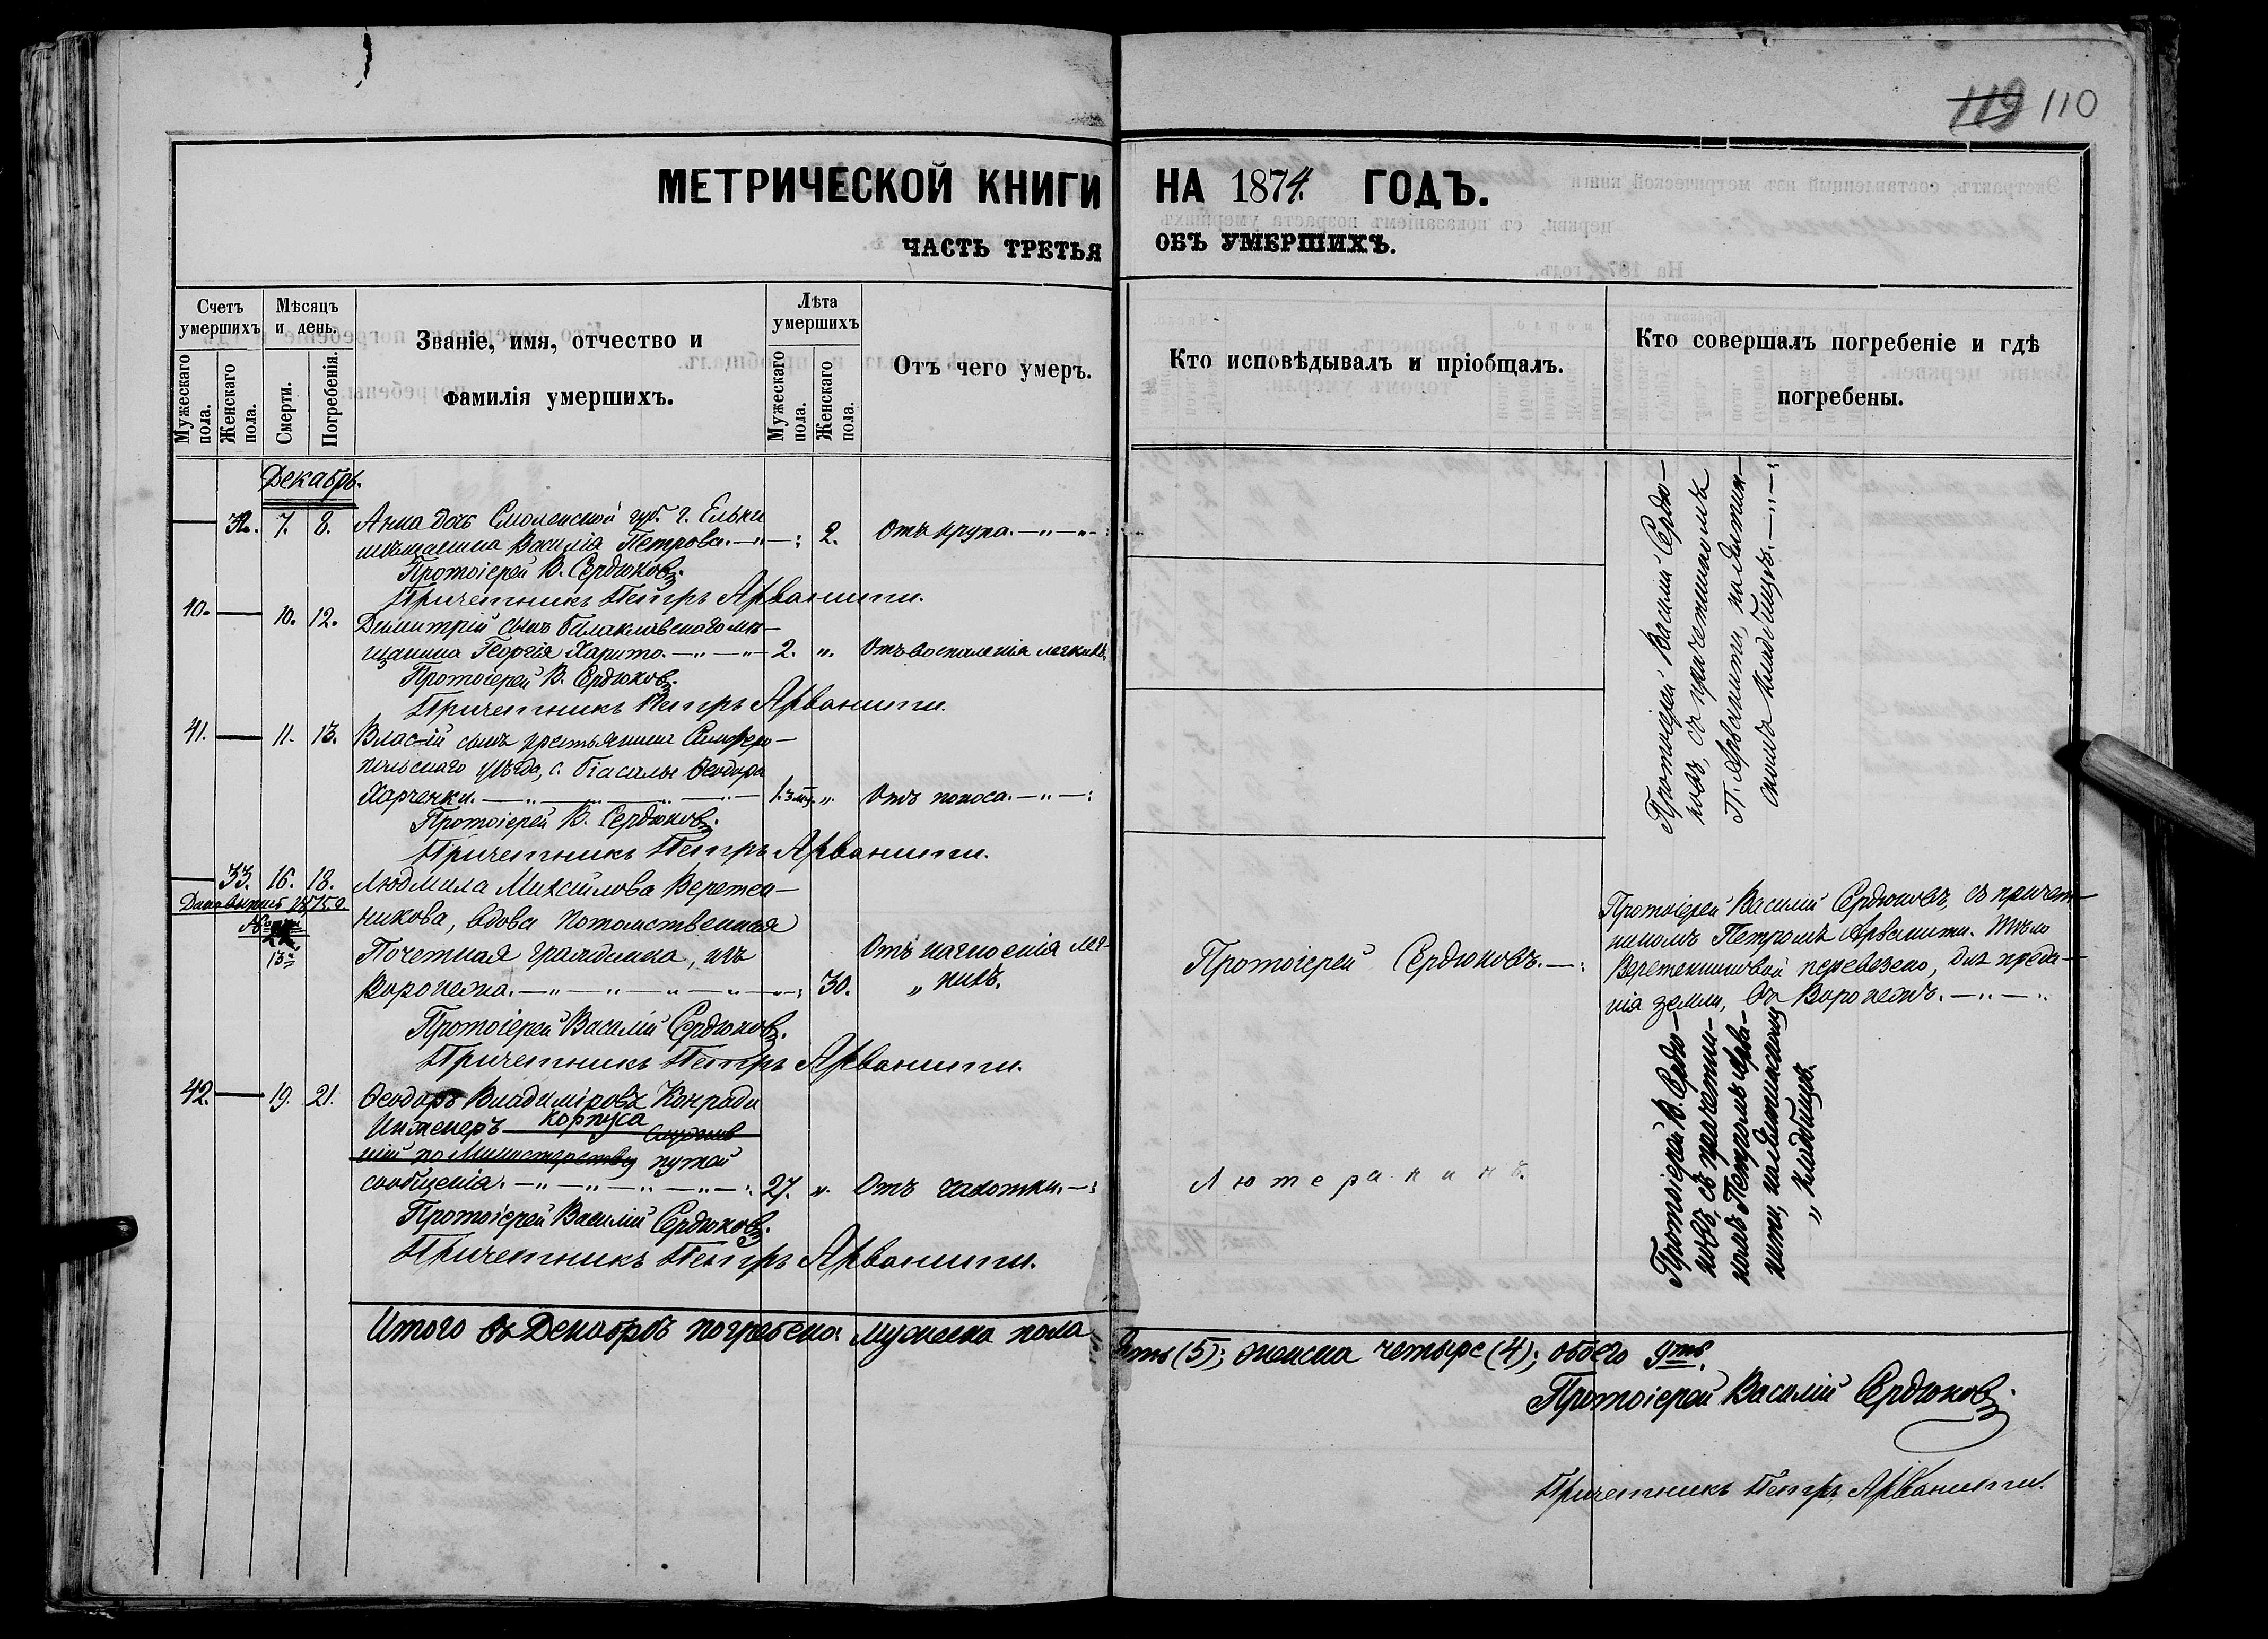 119 110
МЕТРИЧЕСКОЙ КНИГИ НА 1874. ГОДЪ.
ЧАСТЬ ТРЕТЬЯ ОБЪ УМЕРШИХЪ.
Счетъ умершихъ.
Мужескаго пола.
Женскаго пола.
Мѣсяцъ и день.
Смерти.
Погребенія.
Званіе, имя, отчество и
фамилія умершихъ.
Лѣта умершихъ
Мужескаго пола.
Женскаго пола.
Отъ чего умеръ.
Кто исповѣдывалъ и пріобщалъ.
Кто совершалъ погребеніе и гдѣ
погребены.
Декабрь.
32. 7. 8. Анна дочь Смоленской губ. г. Ельни
мѣщанина Василія Петрова. 2. Отъ крупа.
Протоіерей В. Сердюковъ.
Причетникъ Петръ Арванити.
40. 10. 12. Димитрій сынъ Балаклавскаго мѣ-
щанина Георгія Харито. 2. „ Отъ воспаленія легкихъ.
Протоіерей В. Сердюковъ.
Причетникъ Петръ Арванити.
41. 11. 13. Власій сынъ крестьянина Симферо-
польскаго уѣзда, с. Біасалы Ѳеодора
Харченки. 1. 3 мѣ. „ Отъ поноса.
Протоіерей В. Сердюковъ.
Причетникъ Петръ Арванити.
Протоіерей Василій Сердю-
ковъ, съ причетникомъ
П. Арванити, на
скомъ кладбищѣ.
33. 16. 18. Людмила Михайлова Веретен-
никова, вдова Потомственная
Почетная гражданка, изъ
Воронежа. 30. Отъ нагноенія лег-
„ кихъ.
Дана выпись
13
Протоіерей Василій Сердюковъ.
Причетникъ Петръ Арванити.
Протоіерей Сердюковъ.
Протоіерей Василій Сердюковъ, съ причет-
никомъ Петромъ Арванити. Тѣло
Веретенниковой перевезено, для преда-
нія земли, въ Воронежъ.
42. 19. 21. Ѳеодоръ Владиміровъ Конради
Инженеръ корпуса служив
шій по Министерству путей
сообщенія. 27. „ Отъ чахотки.
Протоіерей Василій Сердюковъ.
Причетникъ Петръ Арванити.
Лютеранинъ.
Протоіерей В. Сердю-
ковъ, съ причетни-
комъ Петромъ Арва-
нити, на
„ кладбищѣ.
Итого въ Декабрѣ погребено: мужеска пола пять (5); женска четыре (4); обоего 9ть.
Протоіерей Василій Сердюковъ.
Причетникъ Петръ Арванити.